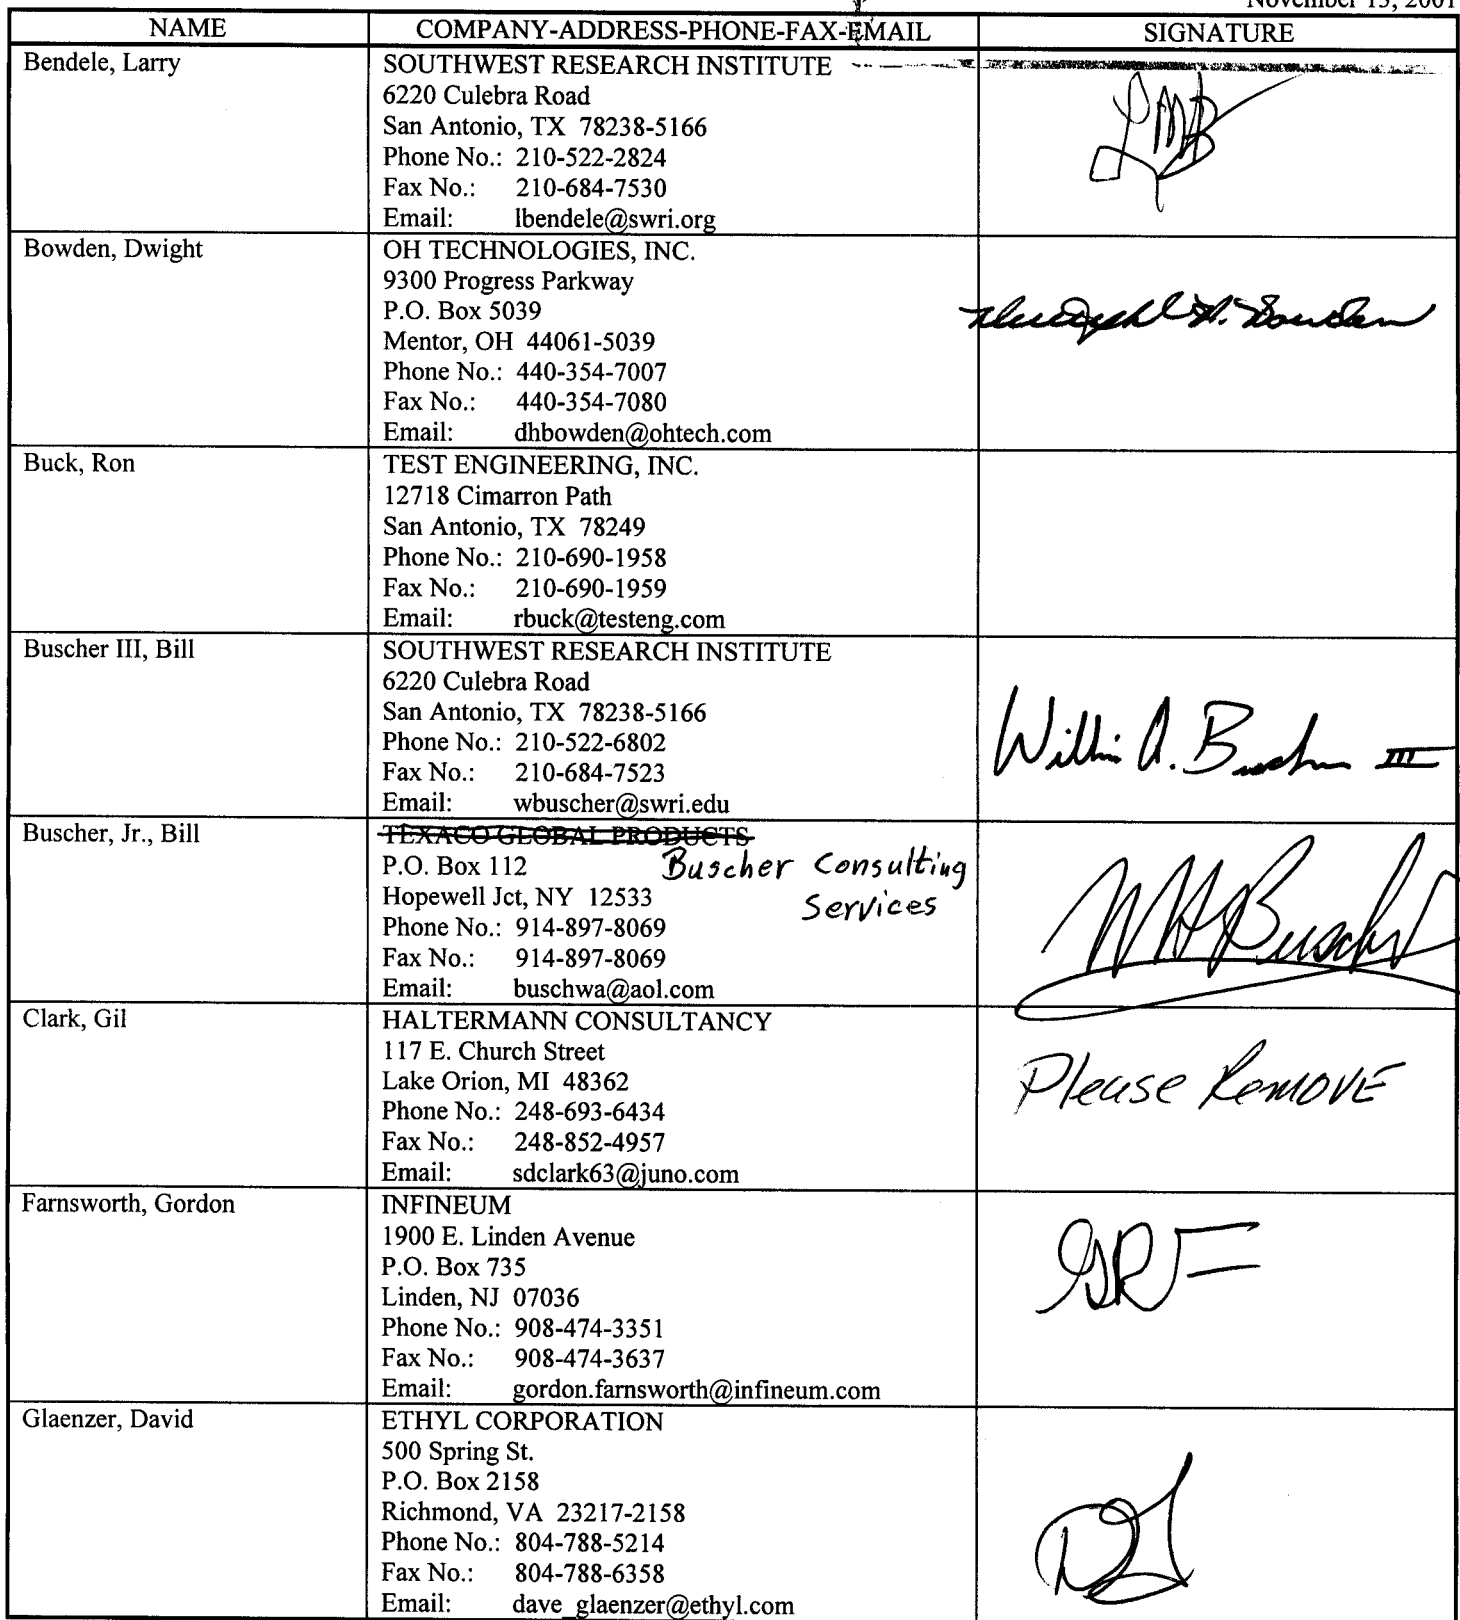 November 13, 2001
NAME COMPANY-ADDRESS-PHONE-FAX-EMAIL SIGNATURE
Bendele, Larry
SOUTHWEST RESEARCH INSTITUTE
6220 Culebra Road
San Antonio, TX 78238-5166
Phone No.: 210-522-2824
Fax No.: 210-684-7530
Email: lbendele@swri.org
LMB
Bowden, Dwight
OH TECHNOLOGIES, INC.
9300 Progress Parkway
P.O. Box 5039
Mentor, OH 44061-5039
Phone No.: 440-354-7007
Fax No.: 440-354-7080
Email: dhbowden@ohtech.com
H. Bowden
Buck, Ron
TEST ENGINEERING, INC.
12718 Cimarron Path
San Antonio, TX 78249
Phone No.: 210-690-1958
Fax No.: 210-690-1959
Email: rbuck@testeng.com
Buscher III, Bill
SOUTHWEST RESEARCH INSTITUTE
6220 Culebra Road
San Antonio, TX 78238-5166
Phone No.: 210-522-6802
Fax No.: 210-684-7523
Email: wbuscher@swri.edu
A. Buscher III
Buscher, Jr., Bill
TEXACO GLOBAL PRODUCTS
Buscher Consulting
Services
P.O. Box 112
Hopewell Jct, NY 12533
Phone No.: 914-897-8069
Fax No.: 914-897-8069
Email: buschwa@aol.com
WABuscher
Clark, Gil
HALTERMANN CONSULTANCY
117 E. Church Street
Lake Orion, MI 48362
Phone No.: 248-693-6434
Fax No.: 248-852-4957
Email: sdclark63@juno.com
Please Remove
Farnsworth, Gordon
INFINEUM
1900 E. Linden Avenue
P.O. Box 735
Linden, NJ 07036
Phone No.: 908-474-3351
Fax No.: 908-474-3637
Email: gordon.farnsworth@infineum.com
GRF
Glaenzer, David
ETHYL CORPORATION
500 Spring St.
P.O. Box 2158
Richmond, VA 23217-2158
Phone No.: 804-788-5214
Fax No.: 804-788-6358
Email: dave_glaenzer@ethyl.com